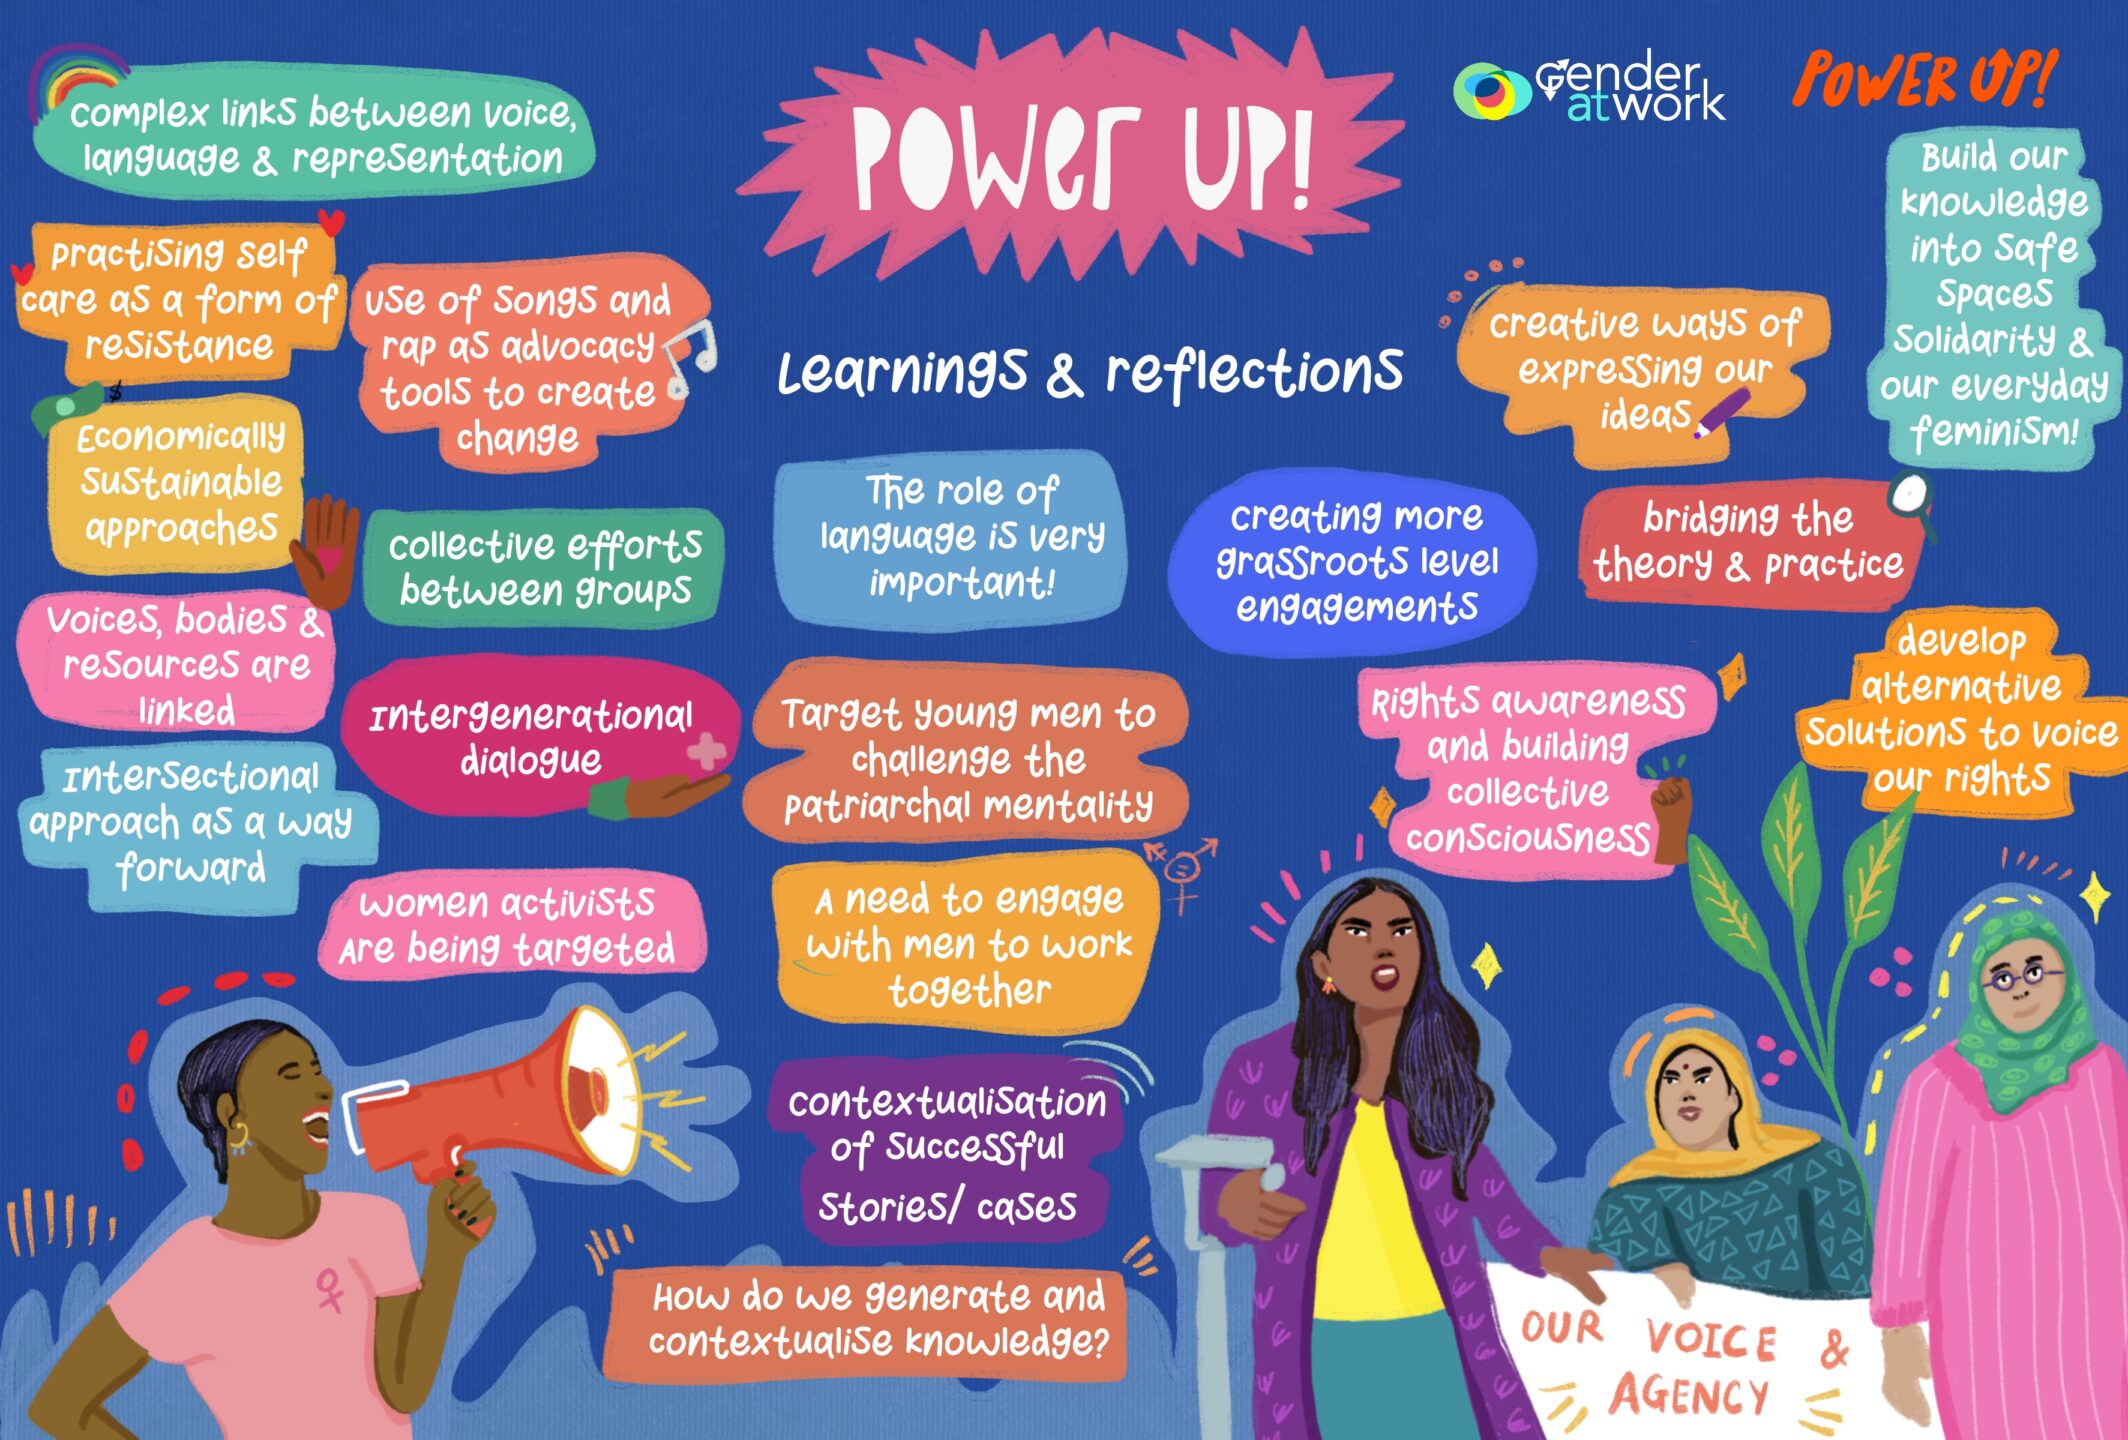 Complex links between voice,
language & representation
Power UP!
Gender
at work
POWER UP!
Practising self
care as a form of
resistance
Use of songs and
rap as advocacy
tools to create
change
$
Economically
sustainable
approaches
Collective efforts
between groups
Voices, bodies &
resources are
linked
Intergenerational
dialogue
Intersectional
approach as a way
forward
Women activists
Are being targeted
Learnings & reflections
The role of
language is very
important!
Target young men to
challenge the
patriarchal mentality
A need to engage
with men to work
together
Contextualisation
of successful
stories/ cases
How do we generate and
contextualise knowledge?
Creative ways of
expressing our
ideas
Creating more
grassroots level
engagements
Bridging the
theory & practice
Build our
knowledge
into safe
spaces
solidarity &
our everyday
feminism!
Rights awareness
and building
collective
consciousness
develop
alternative
solutions to voice
our rights
OUR VOICE &
AGENCY